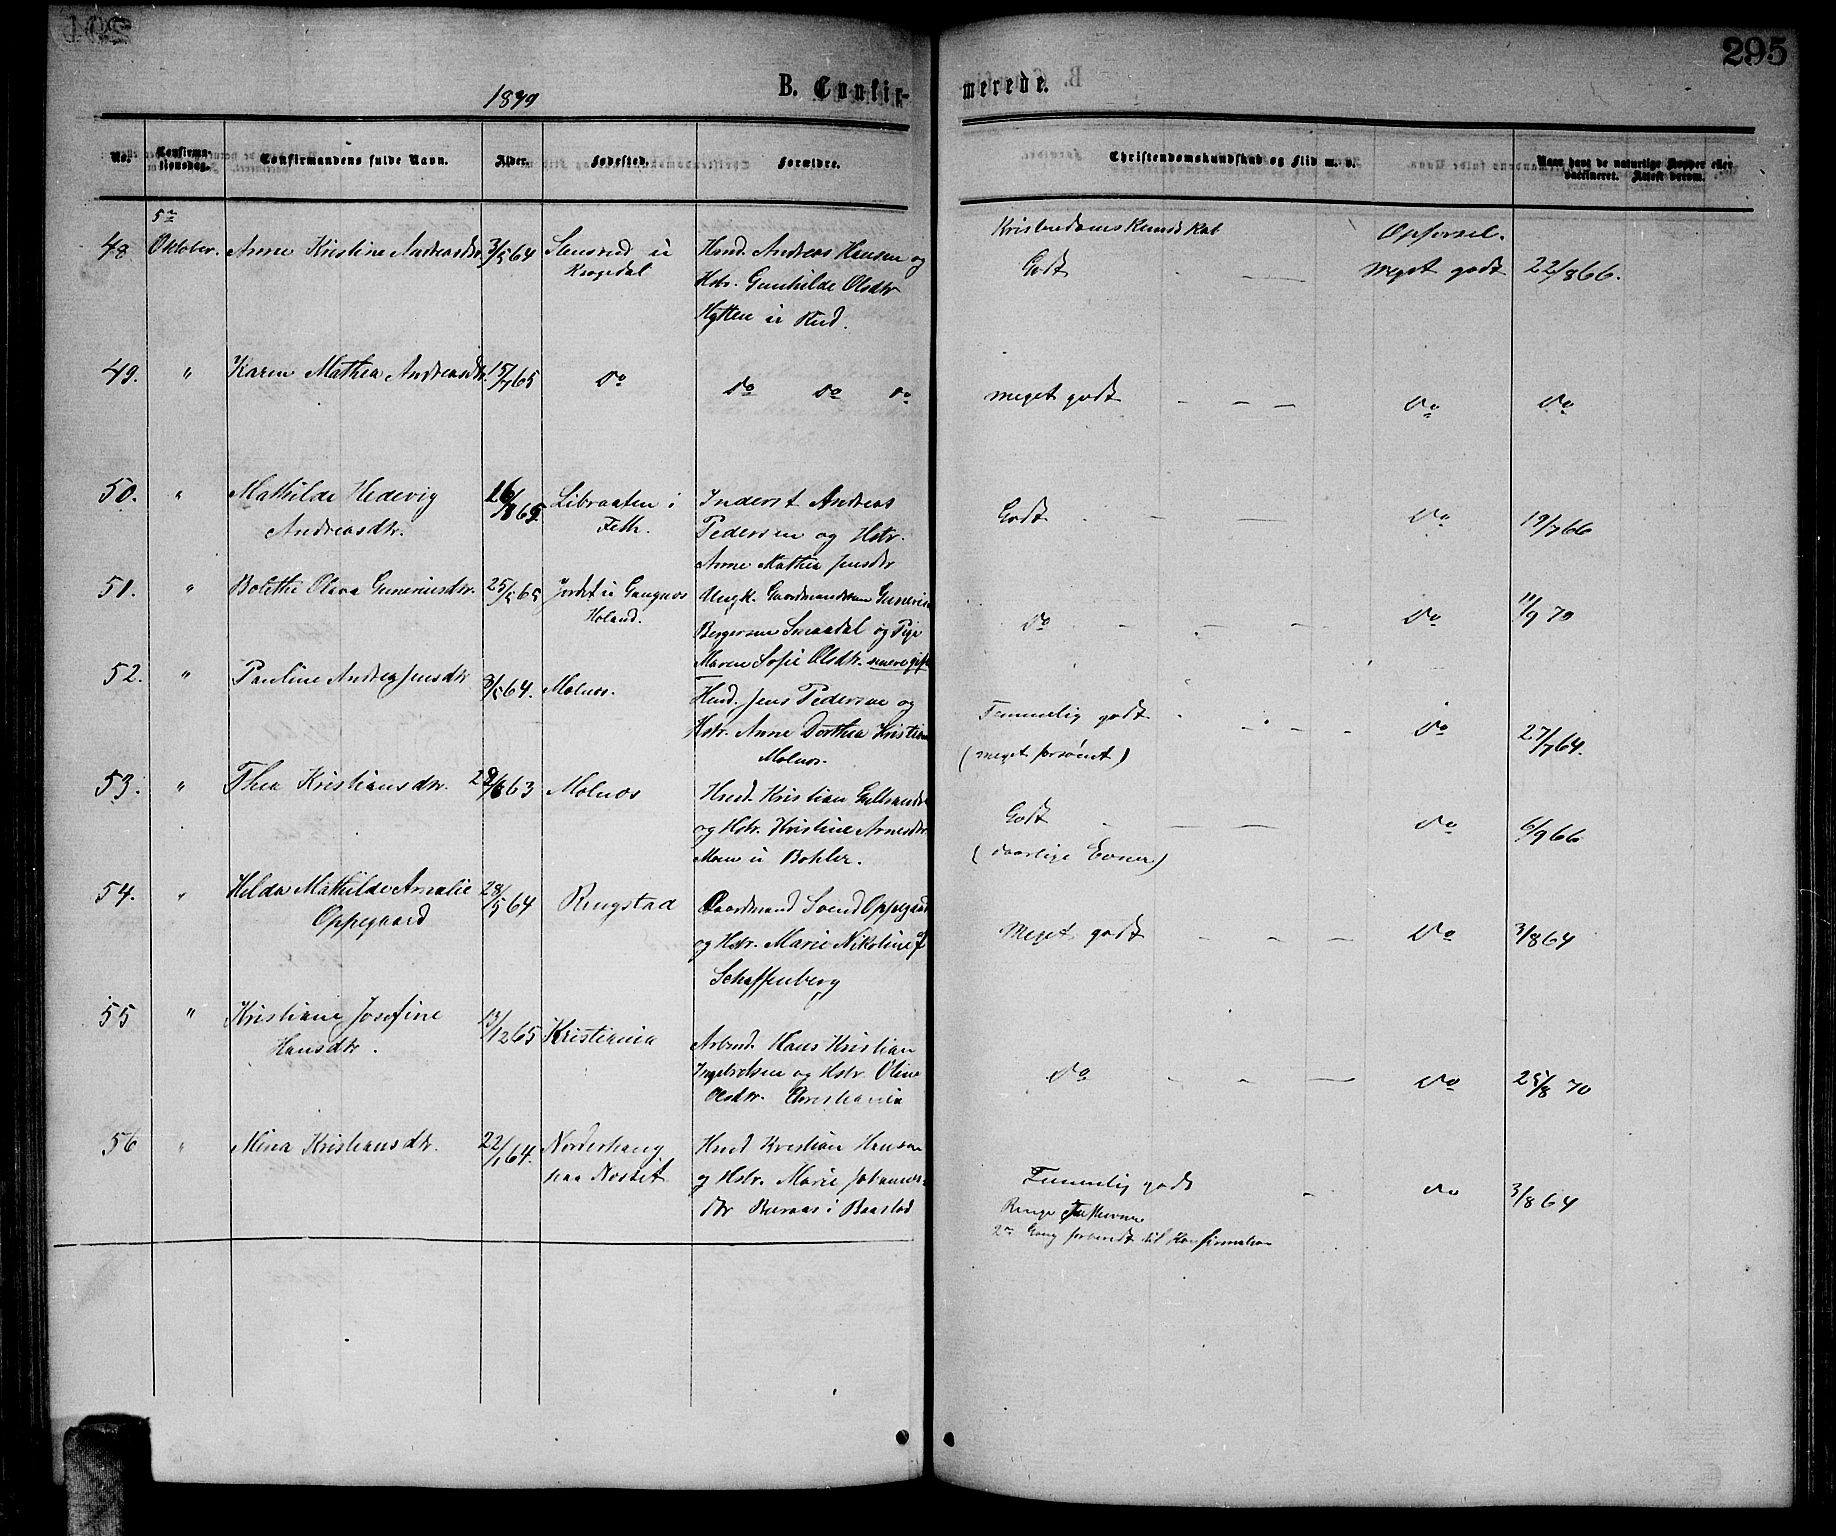 295
1879
B. Confir-
merede.
No. Confirma-tionsdag. Confirmandens fulde Navn. Alder. Fødested. Forældre.
Christendomskundskab og Flid m. v. Naar havt de naturlige Kopper eller vaccineret. Attest derom.
5te
48 Oktober. Anne Kristine Andreasdtr 3/5 64
Hmd. Andreas Hansen og
Hstr. Gunhilde Olsdtr
Hytten u Rud.
Kristendomskundskab Opførsel.
Godt — meget godt 22/8 66.
49. " Karen Mathea Andreasdtr. 15/7 65 Do Do Do Do
meget godt - - — Do Do
50. " Mathilde Hedevig
Andreasdtr.
16/8 65 Libraaten i
Feth.
Inderst Andreas
Pedersen og Hstr.
Anne Mathea Jensdtr
Godt - — Do 19/7 66
51. " Bolethe Olava Guneriusdtr. 25/5 65
Holand.
Ungk. Gaardmandssøn
Bergersen Smaadal og Pige
Maren Sofie Olsdtr.
Do - - - - Do 11/9 70
52. " Pauline Andrea Jensdtr 9/5 64. Molnes.
Hmd. Jens Pedersen og
Hstr. Anne Dorthea Kristians
Molnes.
Temmelig godt - - - - Do 27/7 64.
(meget forsømt)
53. " Thea Kristiansdtr. 29/8 63 Molnes
Hmd. Kristian
og Hstr. Kristine Arnesdtr.
u Bohler.
Godt - — — Do 6/9 66
(daarlige Evner)
54. " Hilda Mathilde Amalie
Oppegaard
28/5 64 Ringstad
Gaardmand Svend Oppegaard
og Hstr. Marie Nikoline f
Schaffenberg
Meget godt - - - — Do 3/8 64
55 " Kristiane Josefine
Hansdtr.
13/12 65 Kristiania
Arbmd. Hans Kristian
Ingebretsen og Hstr. Oline
Olsdtr. Christiania
Do - - — Do 25/8 70
56 " Mina Kristiansdtr. 22/1 64. Norderhaug
paa Nestet
Hmd Kristian Hansen
og Hstr. Marie Johannes-
dtr i Baastad
Temmelig godt - Do 3/8 64
Ringe
2den Gang fremmødt til Konfirmation